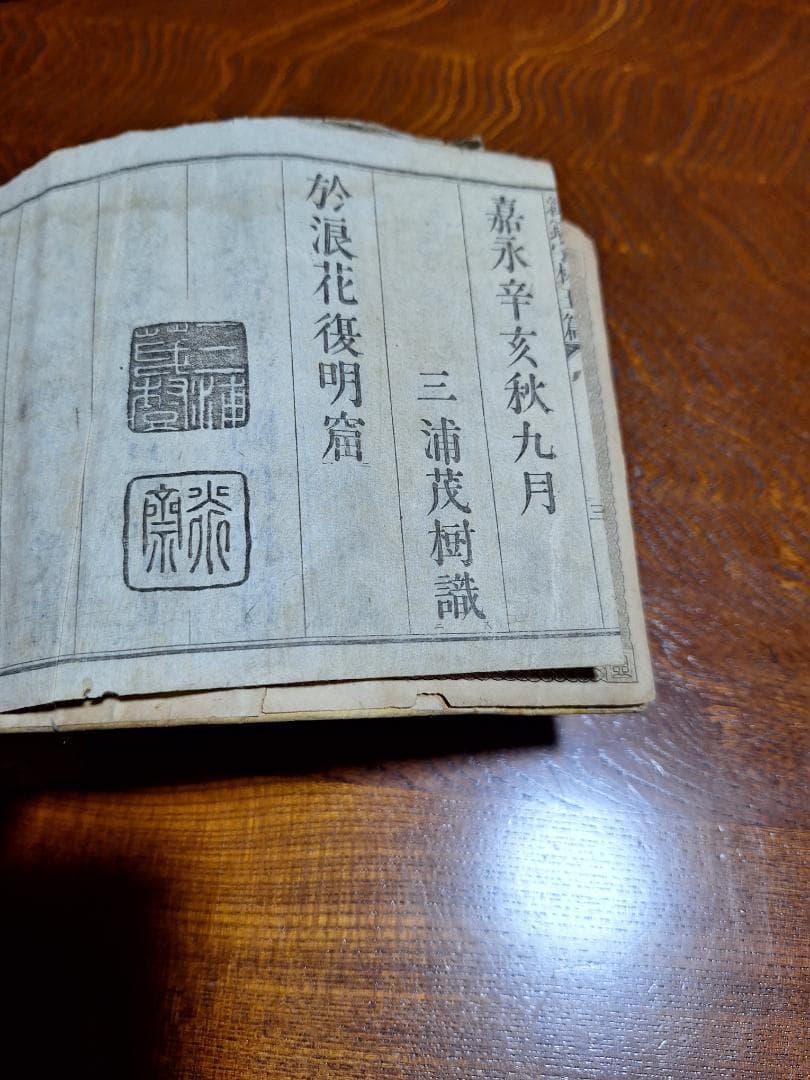 嘉永辛亥秋九月
三浦茂樹識
於浪花復明窟
三浦茂樹
三